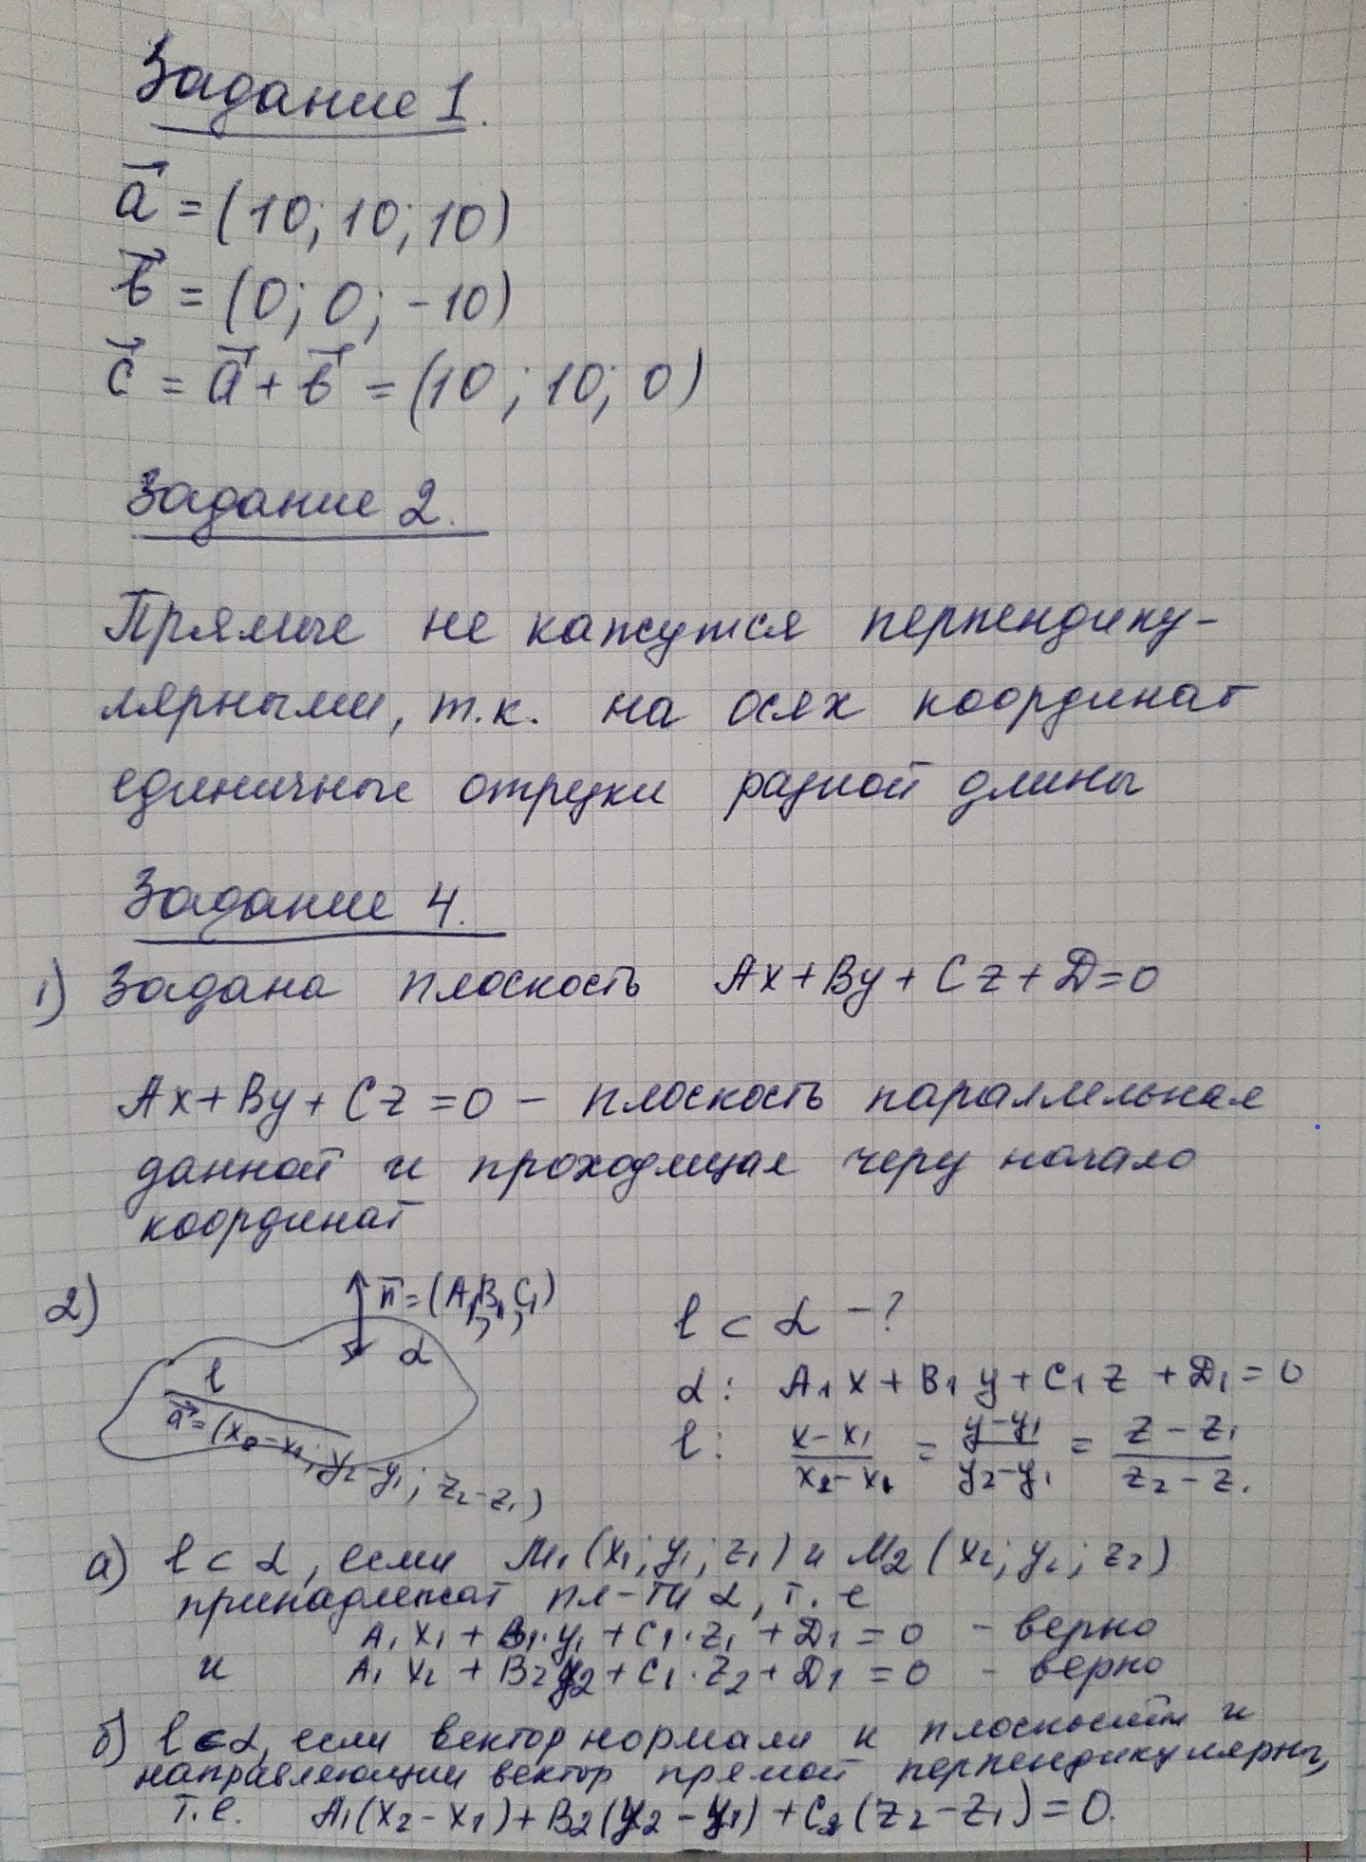 Задание 1.
a⃗ = (10; 10; 10)
b⃗ = (0; 0; -10)
c⃗ = a⃗ + b⃗ = (10; 10; 0)
Задание 2.
Прямые не кажутся перпендику-
лярными, т.к. на осях координат
единичные отрезки разной длины
Задание 4.
1) Задана плоскость Ax+By+Cz+D=0
Ax+By+Cz=0 – плоскость параллельная
данной и проходящая через начало
координат
2) n̄=(A₁,B₁,C₁)
α
l
a⃗=(x₂-x₁; y₂-y₁; z₂-z₁)
l ⊂ α – ?
α: A₁x + B₁y + C₁z + D₁ = 0
l: (x-x₁)/(x₂-x₁) = (y-y₁)/(y₂-y₁) = (z-z₁)/(z₂-z₁)
а) l ⊂ α, если M₁(x₁; y₁; z₁) и M₂(x₂; y₂; z₂)
принадлежат пл-ти α, т. е
A₁x₁ + B₁·y₁ + C₁·z₁ + D₁ = 0 - верно
и A₁x₂ + B₂y₂ + C₁·z₂ + D₁ = 0 - верно
б) l⊂α, если вектор нормали к плоскости и
направляющий вектор прямой перпендикулярны,
т.е. A₁(x₂-x₁)+B₂(y₂-y₁)+C₂(z₂-z₁)=0.